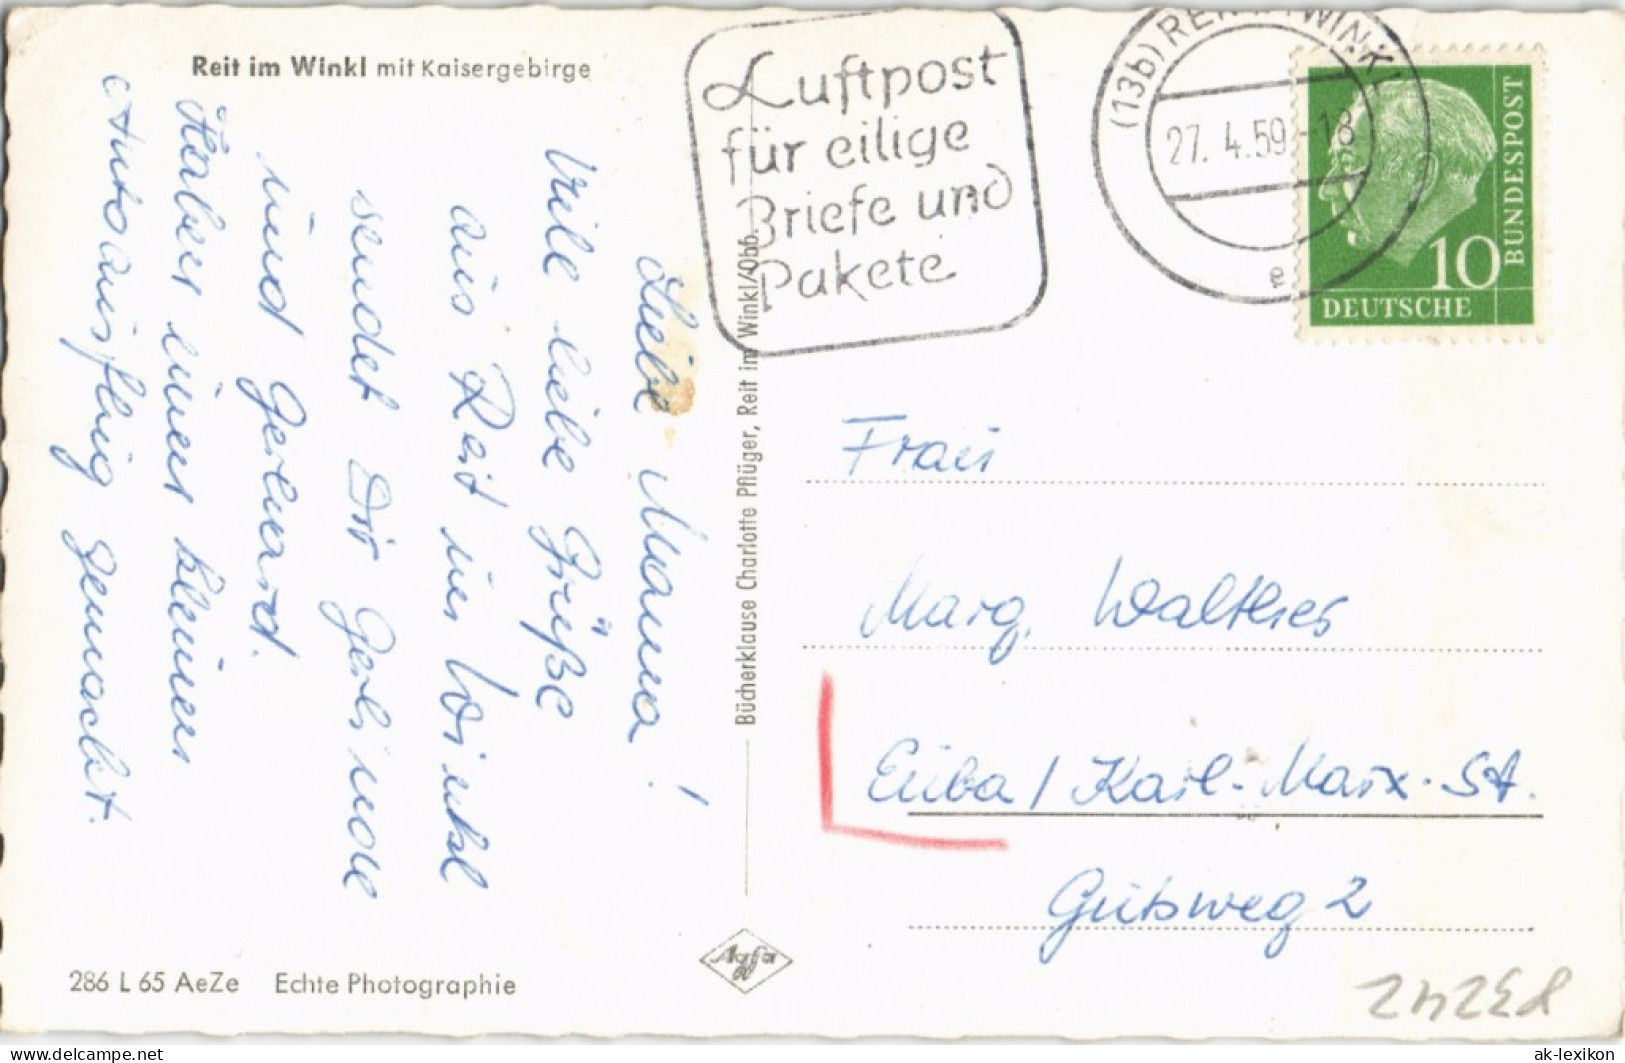 Reit im Winkl mit Kaisergebirge
Luftpost
für eilige
Briefe und
Pakete
(13b) REIT IM WINKL
27. 4.59.-18
e
10
DEUTSCHE
BUNDESPOST
Liebe Mama!
Viele liebe Grüße
aus Reit im Winkl
sendet Dir Gerlinde
und Gerhard.
Haben einen kleinen
Autoausflug gemacht.
Bücherklause Charlotte Pflüger, Reit im Winkl/Obb.
Frau
Marg. Walther
Euba / Karl-Marx-St.
Gutsweg 2
286 L 65 AeZe Echte Photographie
Agfa
P3242
ak-lexikon.de